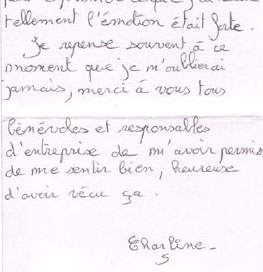 tellement l'émotion était forte.
Je repense souvent à ce
moment que je n'oublierai
jamais, merci à vous tous
bénévoles et responsables
d'entreprise de m'avoir permis
de me sentir bien, heureuse
d'avoir vécu ça.
Charline